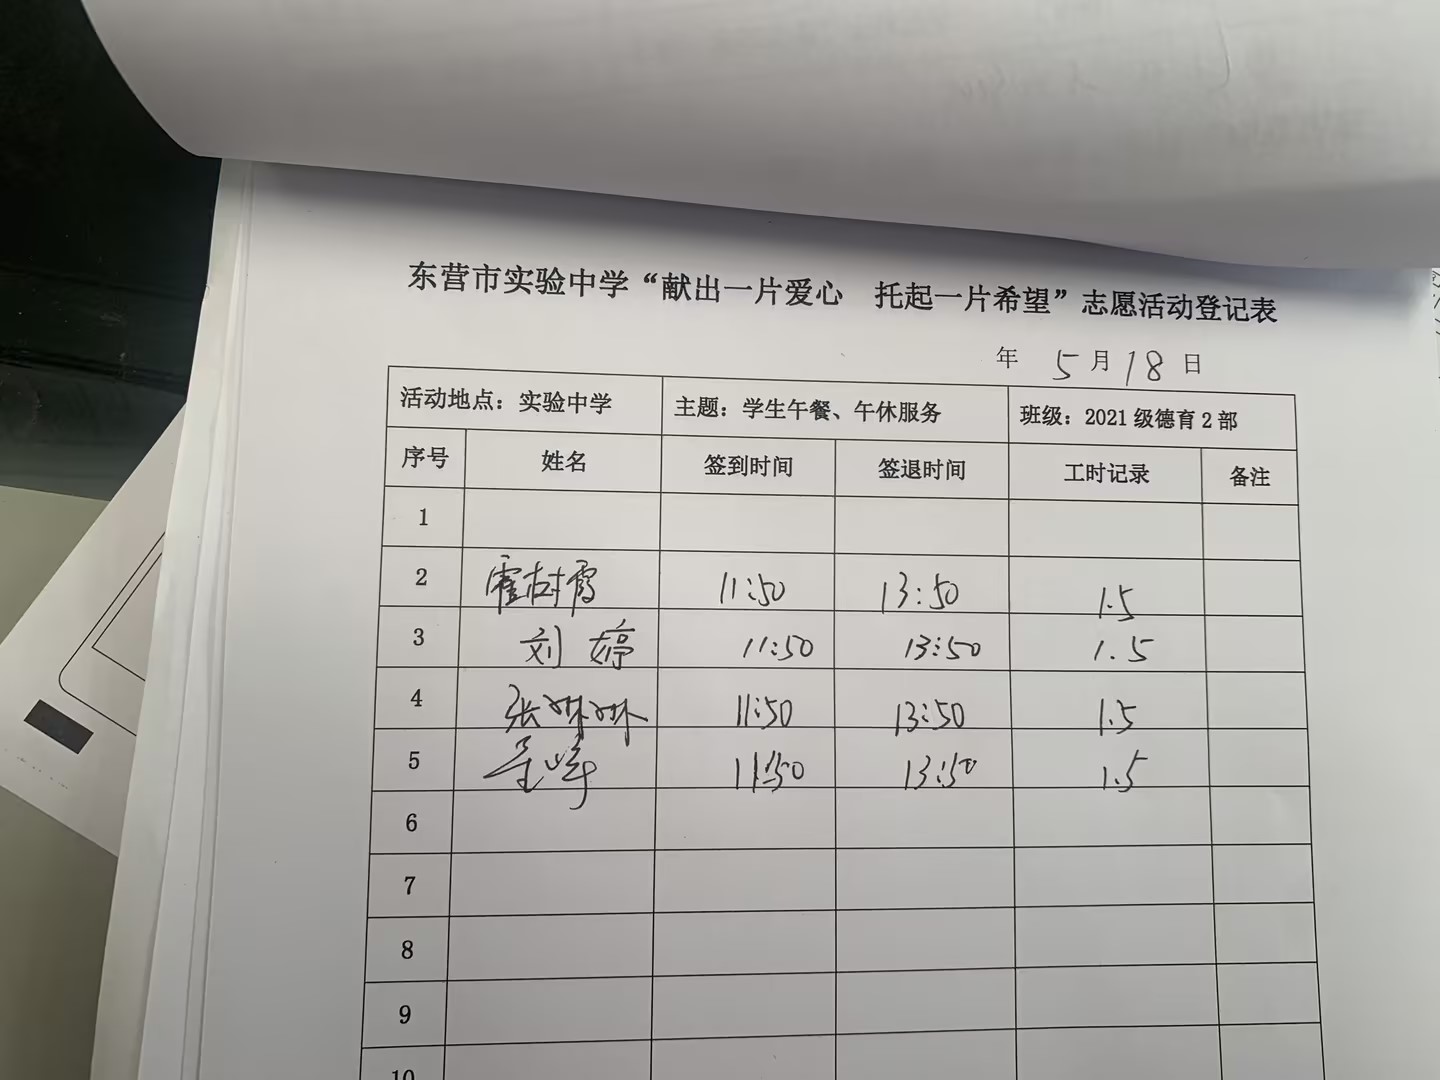 东营市实验中学“献出一片爱心 托起一片希望”志愿活动登记表
年 5月18日
活动地点：实验中学 主题：学生午餐、午休服务 班级：2021级德育2部
序号 姓名 签到时间 签退时间 工时记录 备注
1
2 霍树霞 11:50 13:50 1.5
3 刘婷 11:50 13:50 1.5
4 张琳琳 11:50 13:50 1.5
5 11:50 13:50 1.5
6
7
8
9
10